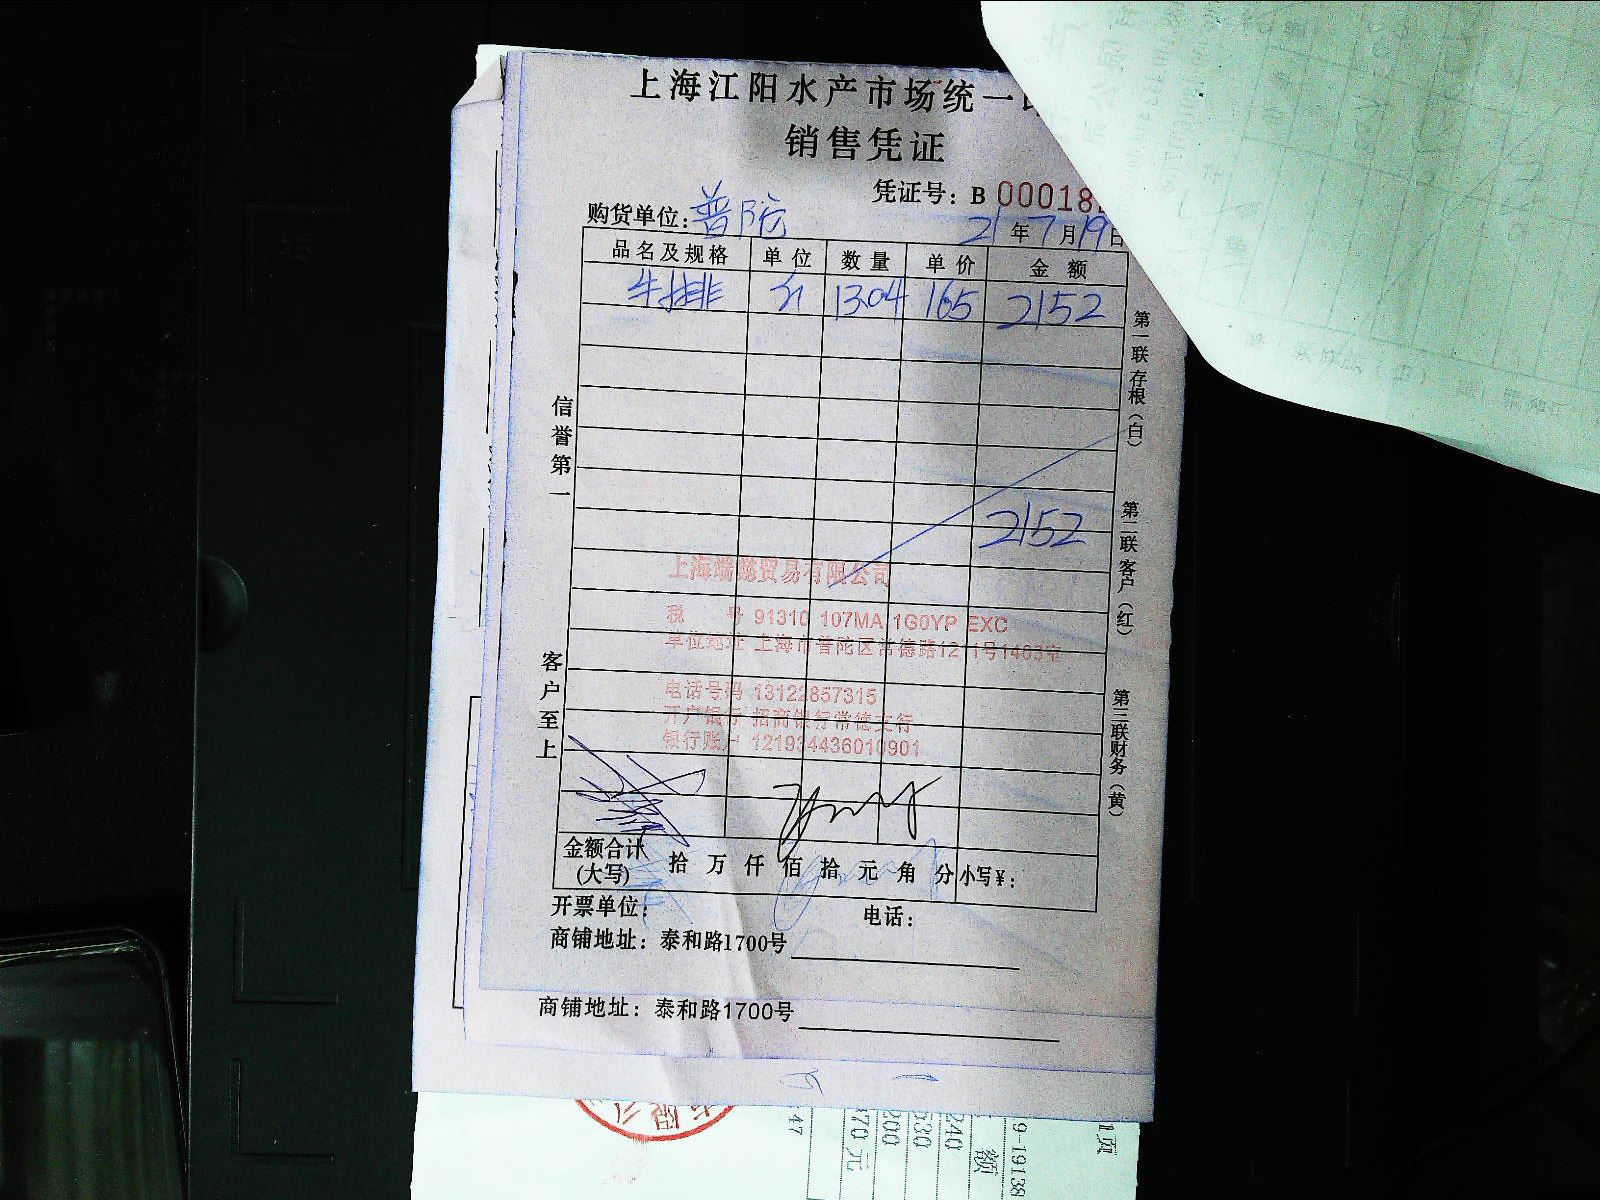 上海江阳水产市场统一
销售凭证
凭证号：B 00018
购货单位：普陀
21年7月19日
品名及规格 单位 数量 单价 金额
牛排 斤 13.04 165 2152
2152
信誉第一
客户至上
第一联存根（白）
第二联客户（红）
第三联财务（黄）
上海端懿贸易有限公司
税 号 91310 107MA 1G0YP EXC
单位地址 上海市普陀区常德路1211号1403室
电话号码 13122857315
开户银行 招商银行常德支行
银行账户 121934436010901
金额合计(大写) 拾 万 仟 佰 拾 元 角 分 小写¥：
开票单位：
电话：
商铺地址：泰和路1700号
商铺地址：泰和路1700号
有限公
1页
9-19138
额
240
530
200
370元
47